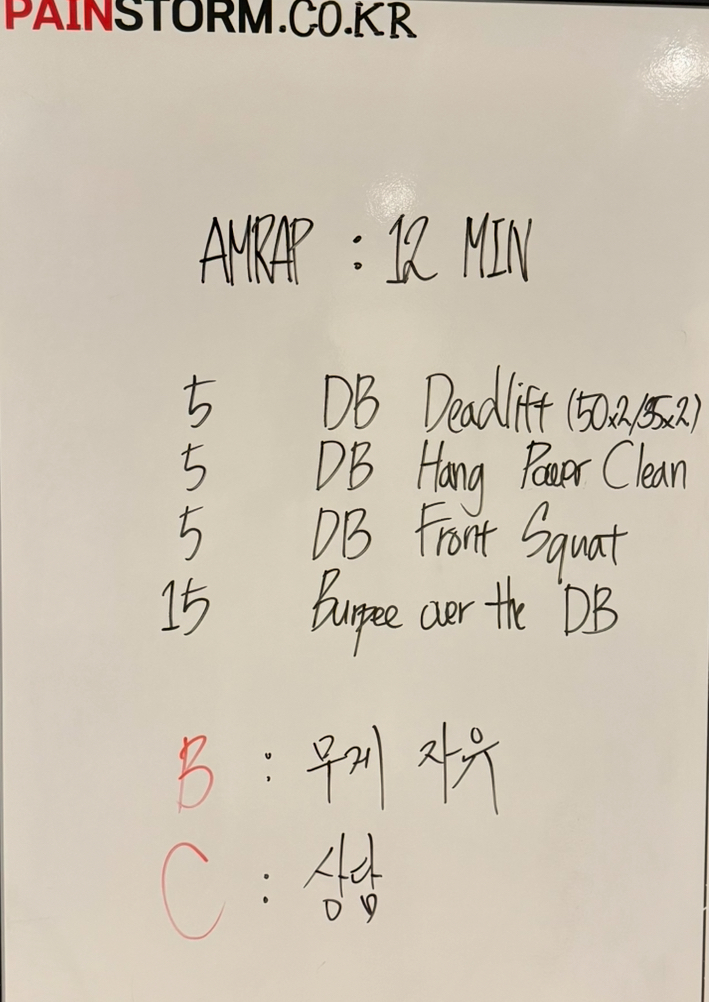 PAINSTORM.CO.KR
AMRAP : 12 MIN
5 DB Deadlift (50x2/35x2)
5 DB Hang Power Clean
5 DB Front Squat
15 Burpee over the DB
B : 무게 자유
C : 상담